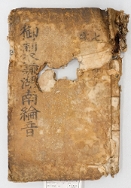 御製諭湖南綸音